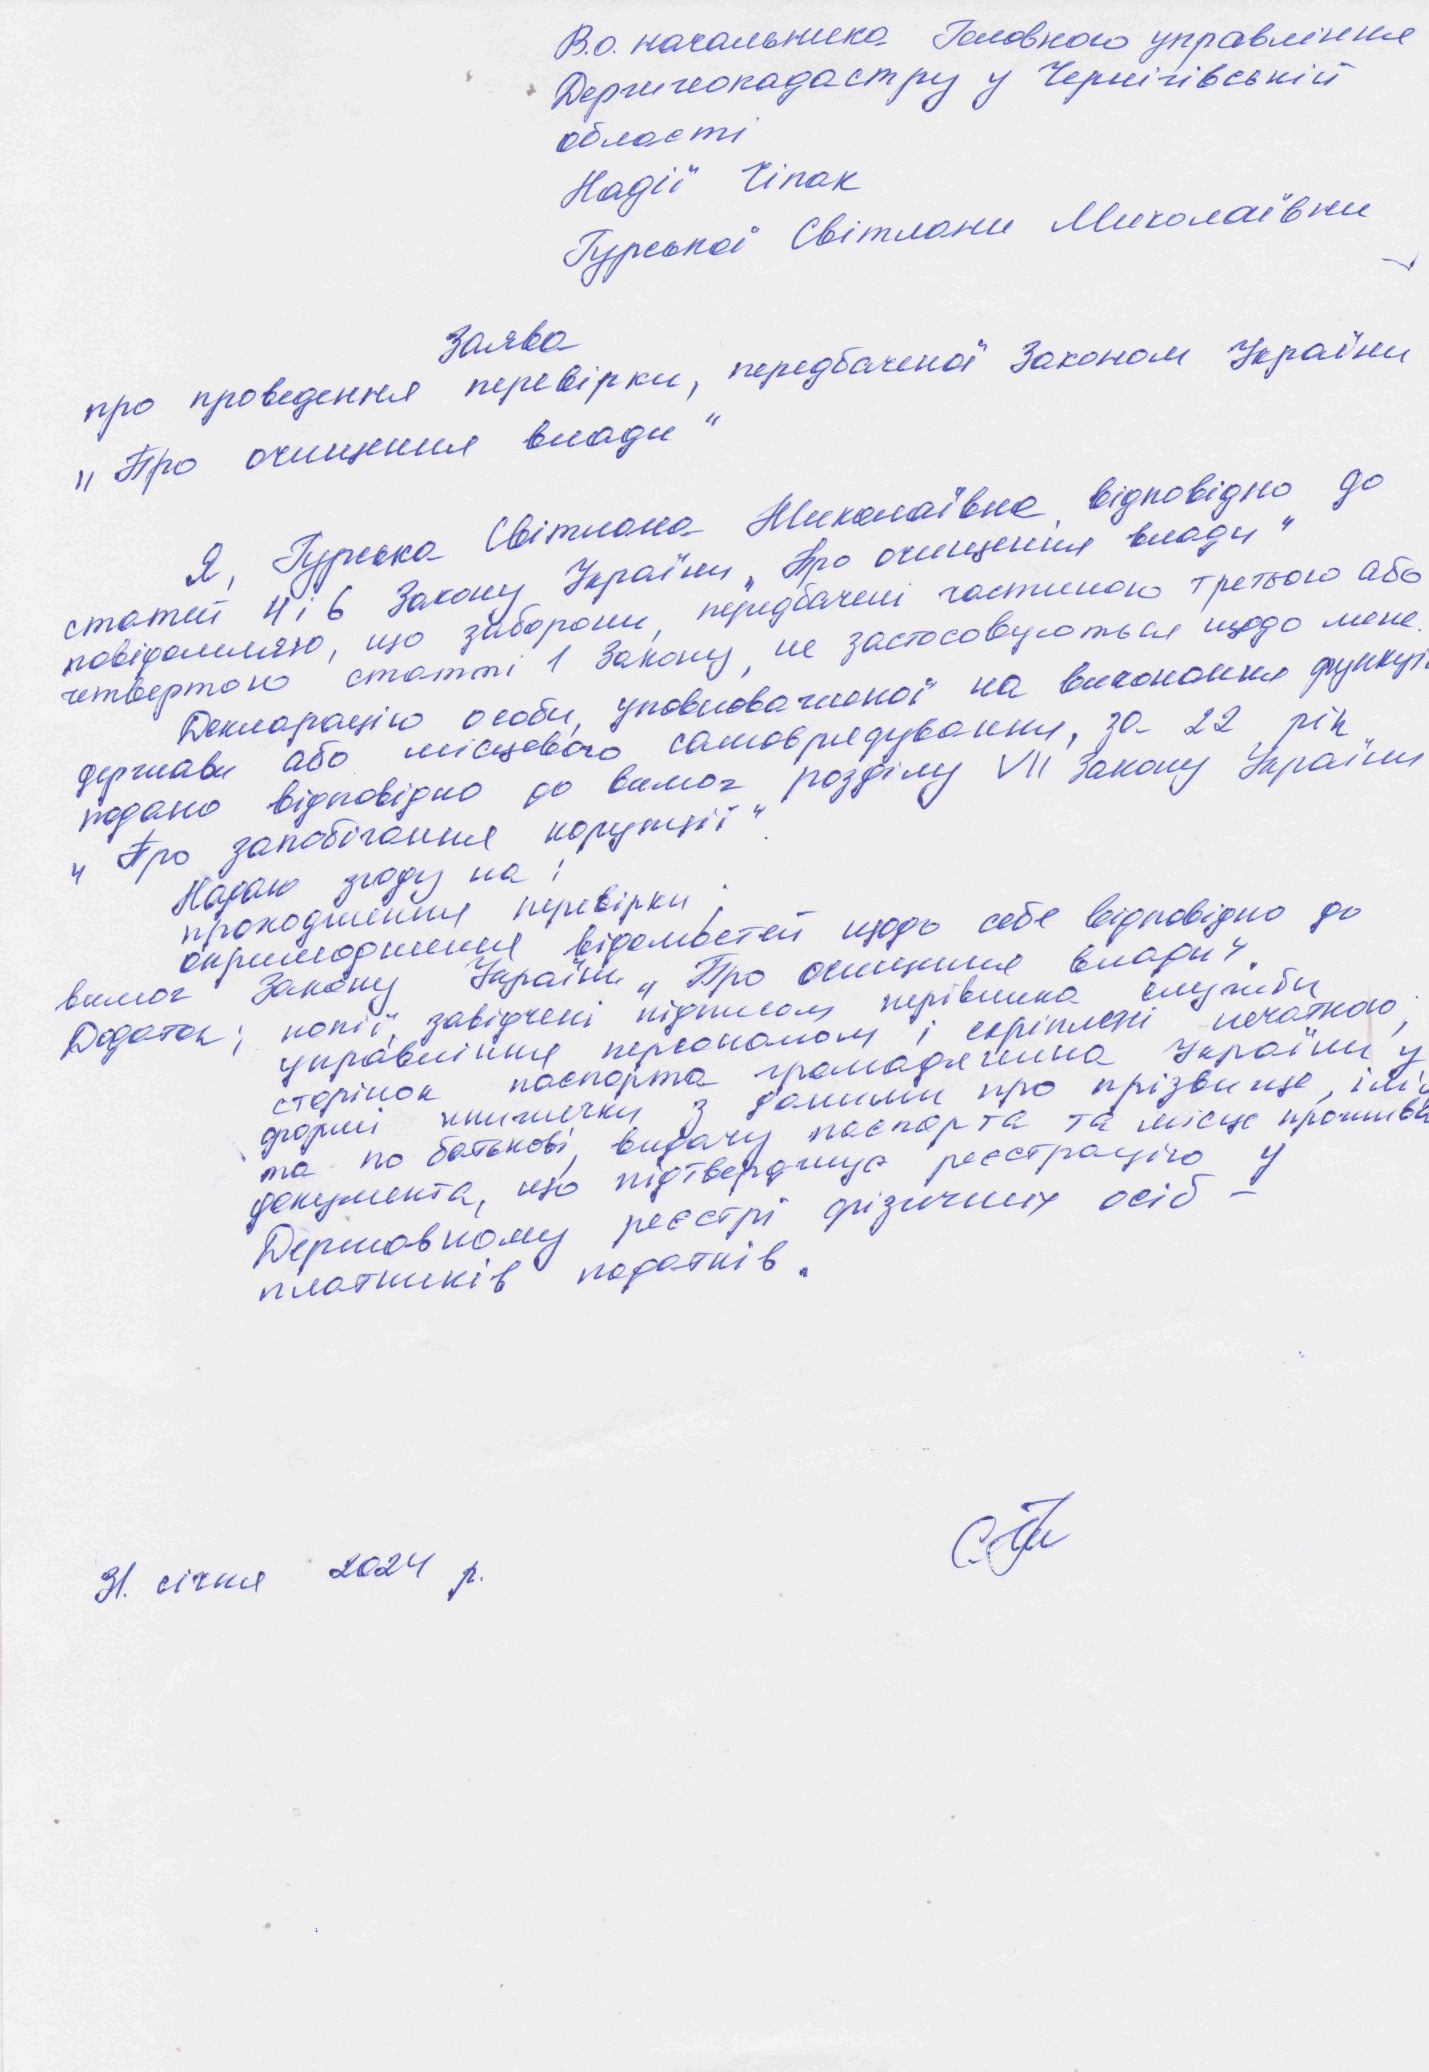 В.о. начальника Головного управління
Держгеокадастру у Чернігівській
області
Надії Чіпак
Гурської Світлани Миколаївни
Заява
про проведення перевірки, передбаченої Законом України
„Про очищення влади“
Я, Гурська Світлана Миколаївна відповідно до
статей 4 і 6 Закону України „Про очищення влади“
повідомляю, що заборони, передбачені частиною третьою або
четвертою статті 1 Закону, не застосовуються щодо мене.
Декларацію особи, уповноваженої на виконання функцій
держави або місцевого самоврядування, за 22 рік
подано відповідно до вимог розділу VII Закону України
„Про запобігання корупції“.
Надаю згоду на:
проходження перевірки;
оприлюднення відомостей щодо себе відповідно до
вимог Закону України „Про очищення влади“.
Додаток: копії, завірені підписом керівника служби
управління персоналом і скріплені печаткою,
сторінок паспорта громадянина України у
формі книжечки з даними про прізвище, ім'я
та по батькові, видачу паспорта та місце прожива
документа, що підтверджує реєстрацію у
Державному реєстрі фізичних осіб –
платників податків.
31. січня 2024 р.